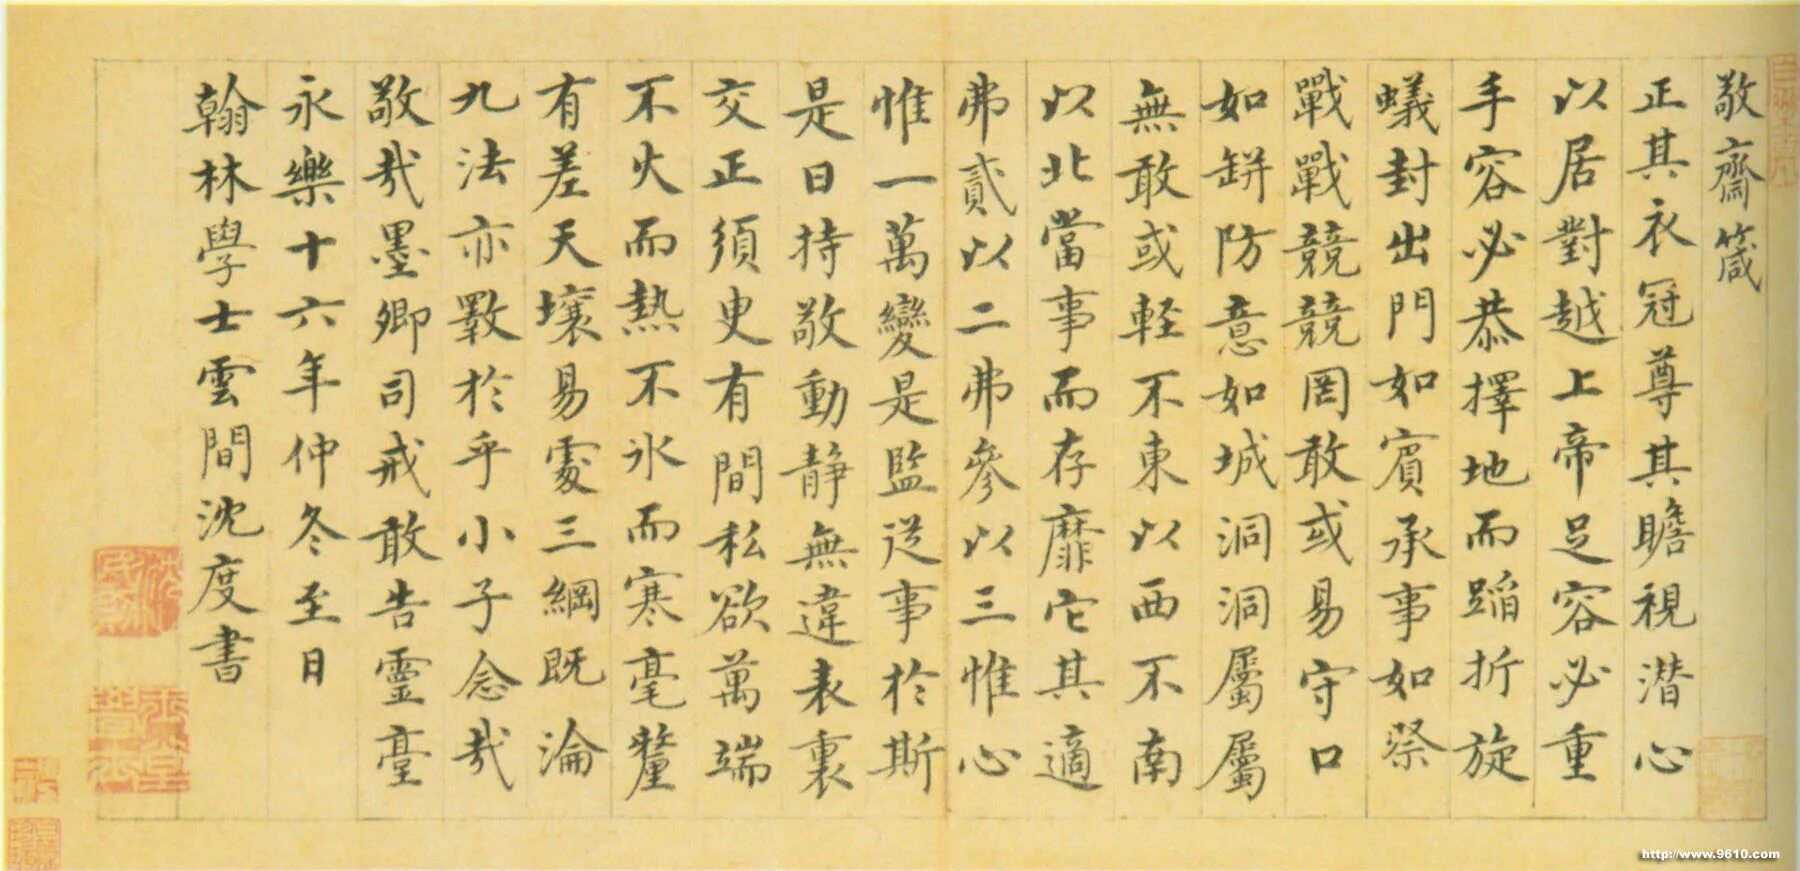 敬齋箴
正其衣冠尊其瞻視潛心
以居對越上帝足容必重
手容必恭擇地而蹈折旋
蟻封出門如賓承事如祭
戰戰競競罔敢或易守口
如缾防意如城洞洞屬屬
無敢或輕不東以西不南
以北當事而存靡它其適
弗貳以二弗參以三惟心
惟一萬變是監從事於斯
是曰持敬動靜無違表裏
交正須臾有間私欲萬端
不火而熱不氷而寒毫釐
有差天壤易處三綱既淪
九法亦斁於乎小子念哉
敬哉墨卿司戒敢告靈臺
永樂十六年仲冬至日
翰林學士雲間沈度書
http://www.9610.com